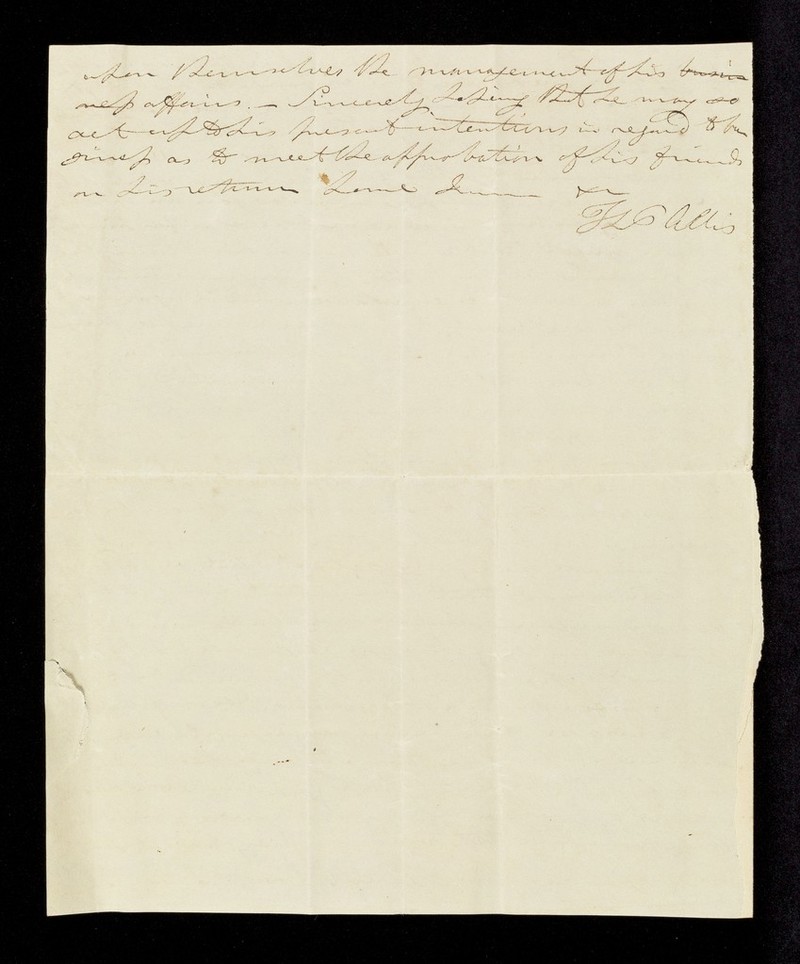 upon themselves the management of his busi
ness affairs. – Sincerely hoping that he may so
act up to his present intentions in regard to bu
siness as to meet the approbation of his friends
on his return home I am &c
Allis